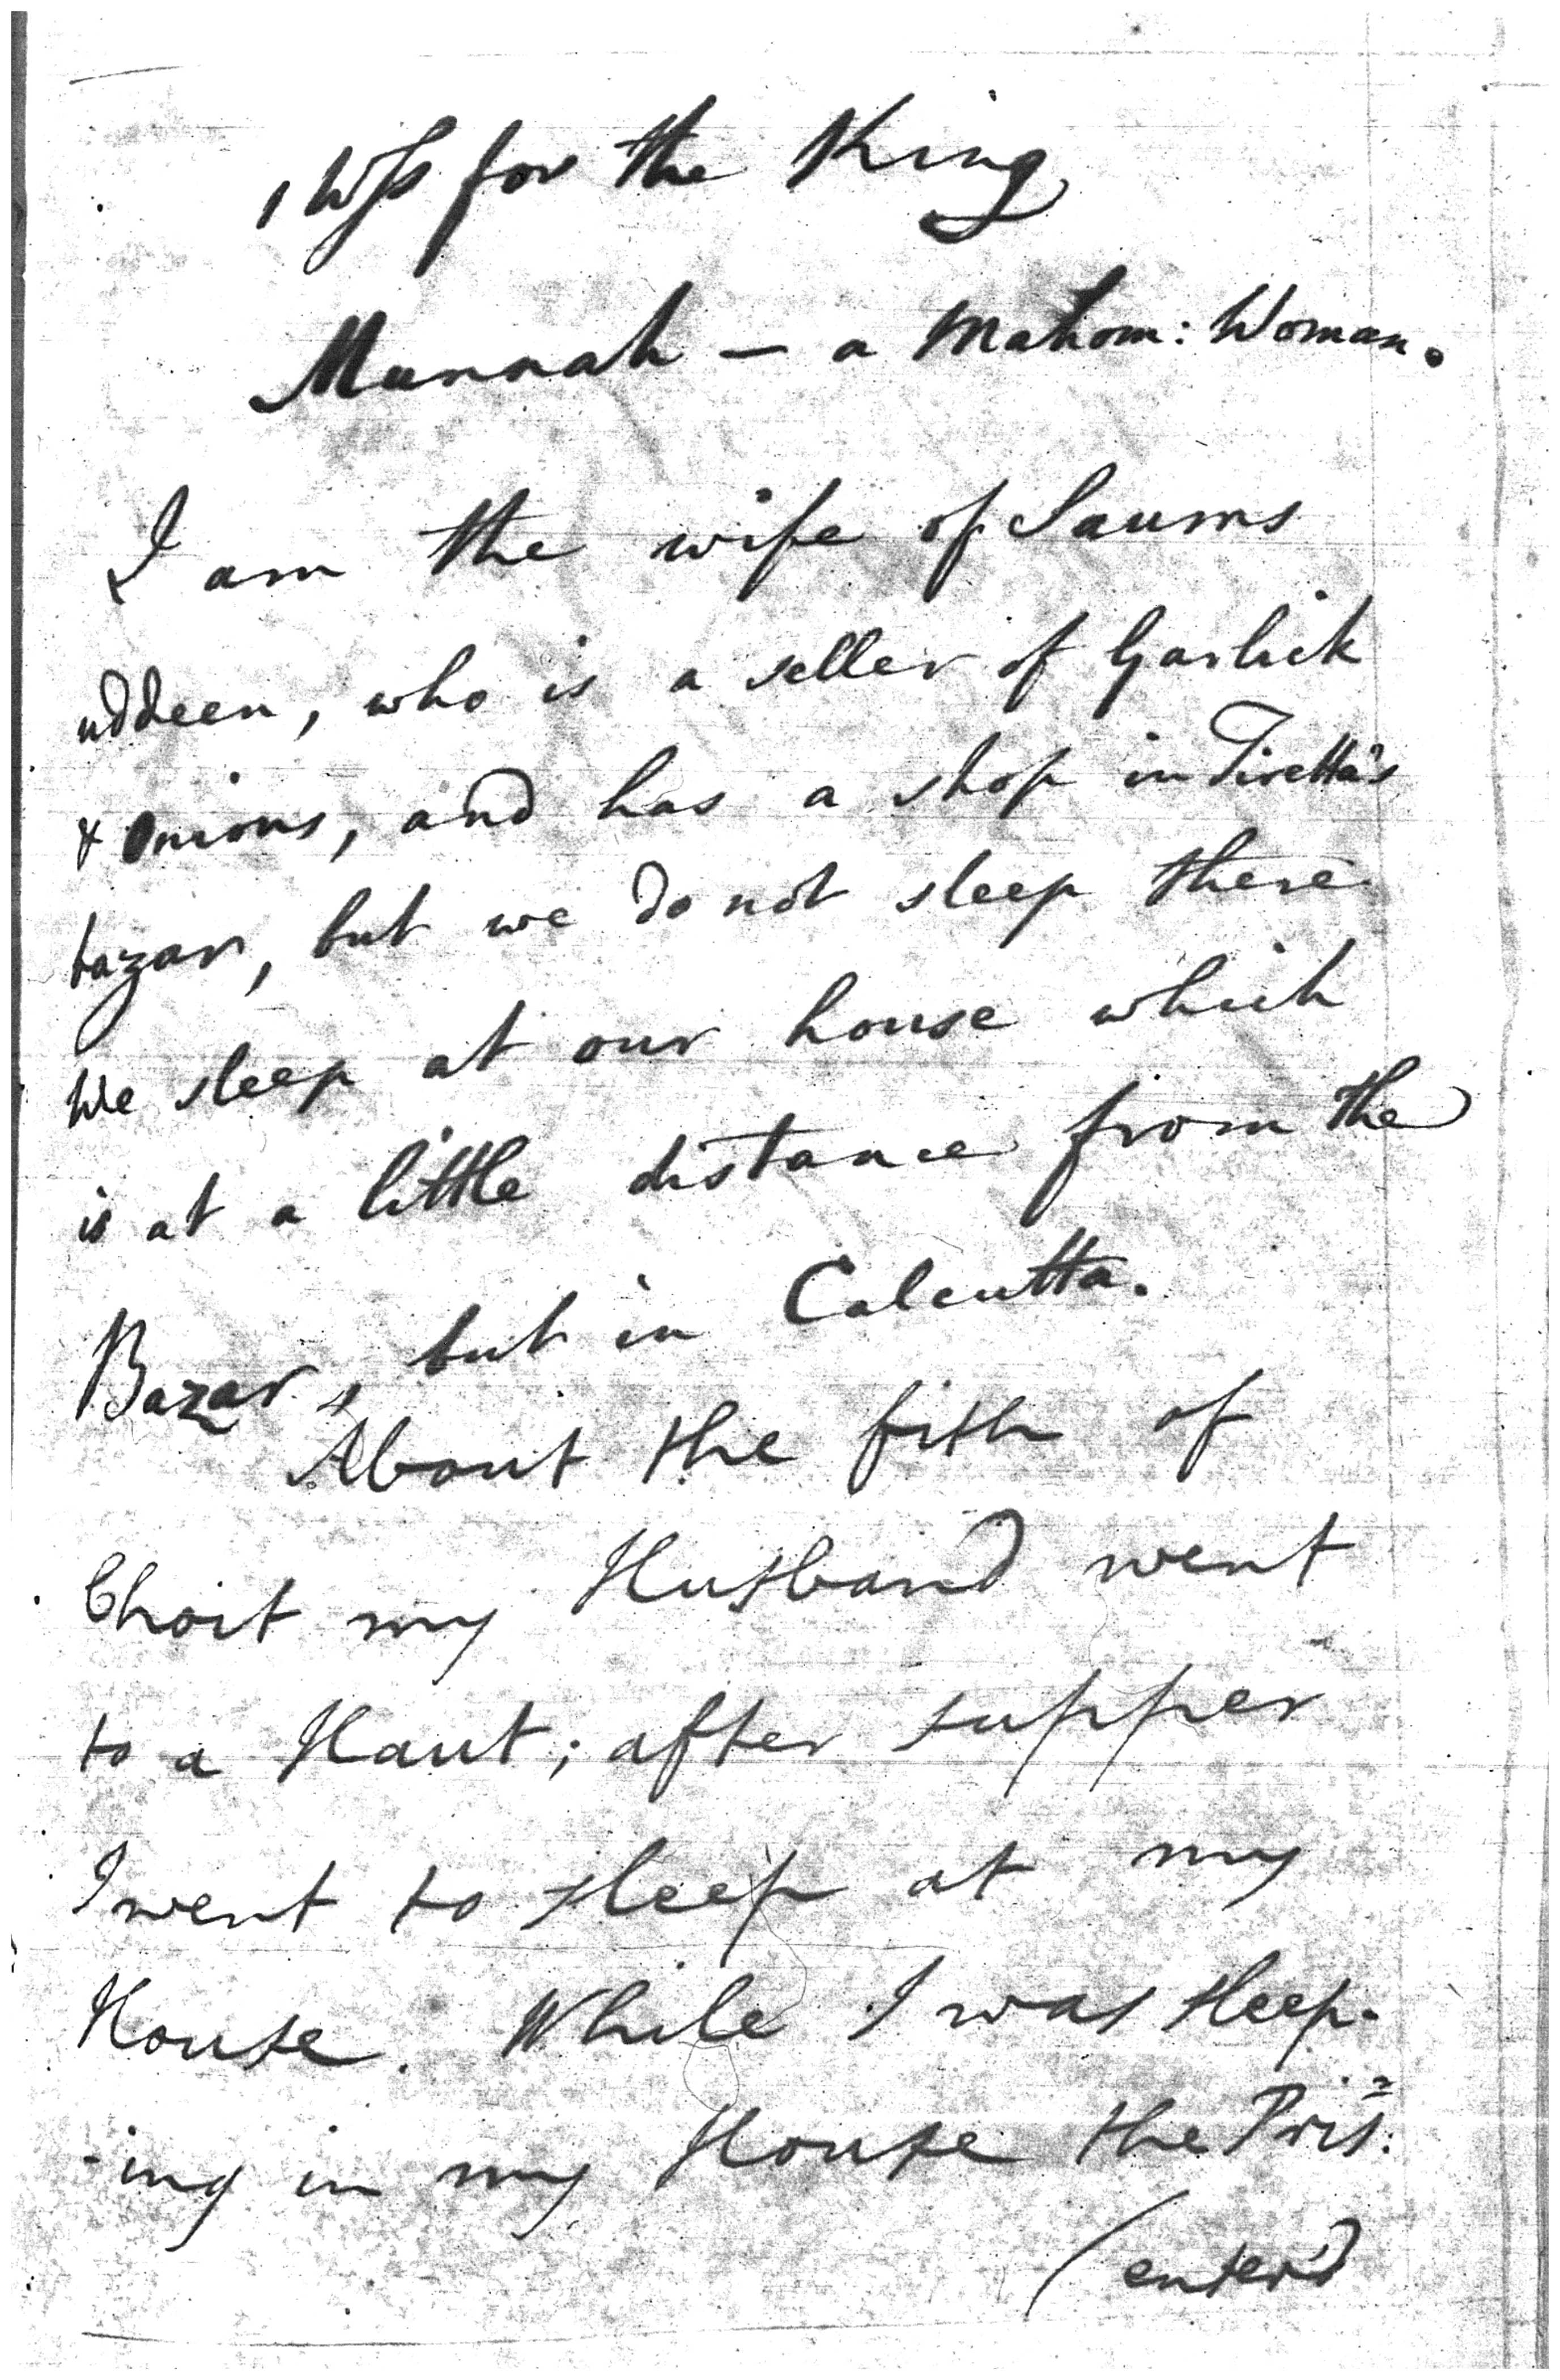 1 Wss for the King
Munnah — a Mahom: Woman.
I am the wife of Saums
uddeen, who is a seller of Garlick
& Onions, and has a shop in Tiretta's
bazar, but we do not sleep there
We sleep at our house which
is at a little distance from the
Bazar, but in Calcutta.
About the fifth of
Choit my Husband went
to a Haut; after supper
I went to sleep at my
House. While I was sleep-
-ing in my House the Pris:
(enter'd